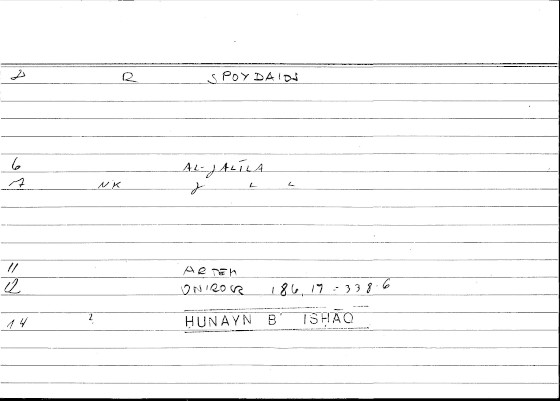 2 R SPOYDAIOS
6 AL-JALĪLA
7 NK J L L
11 ARTEM
12 ONIROCR 186,17-338.6
14 2 HUNAYN B ISHAQ